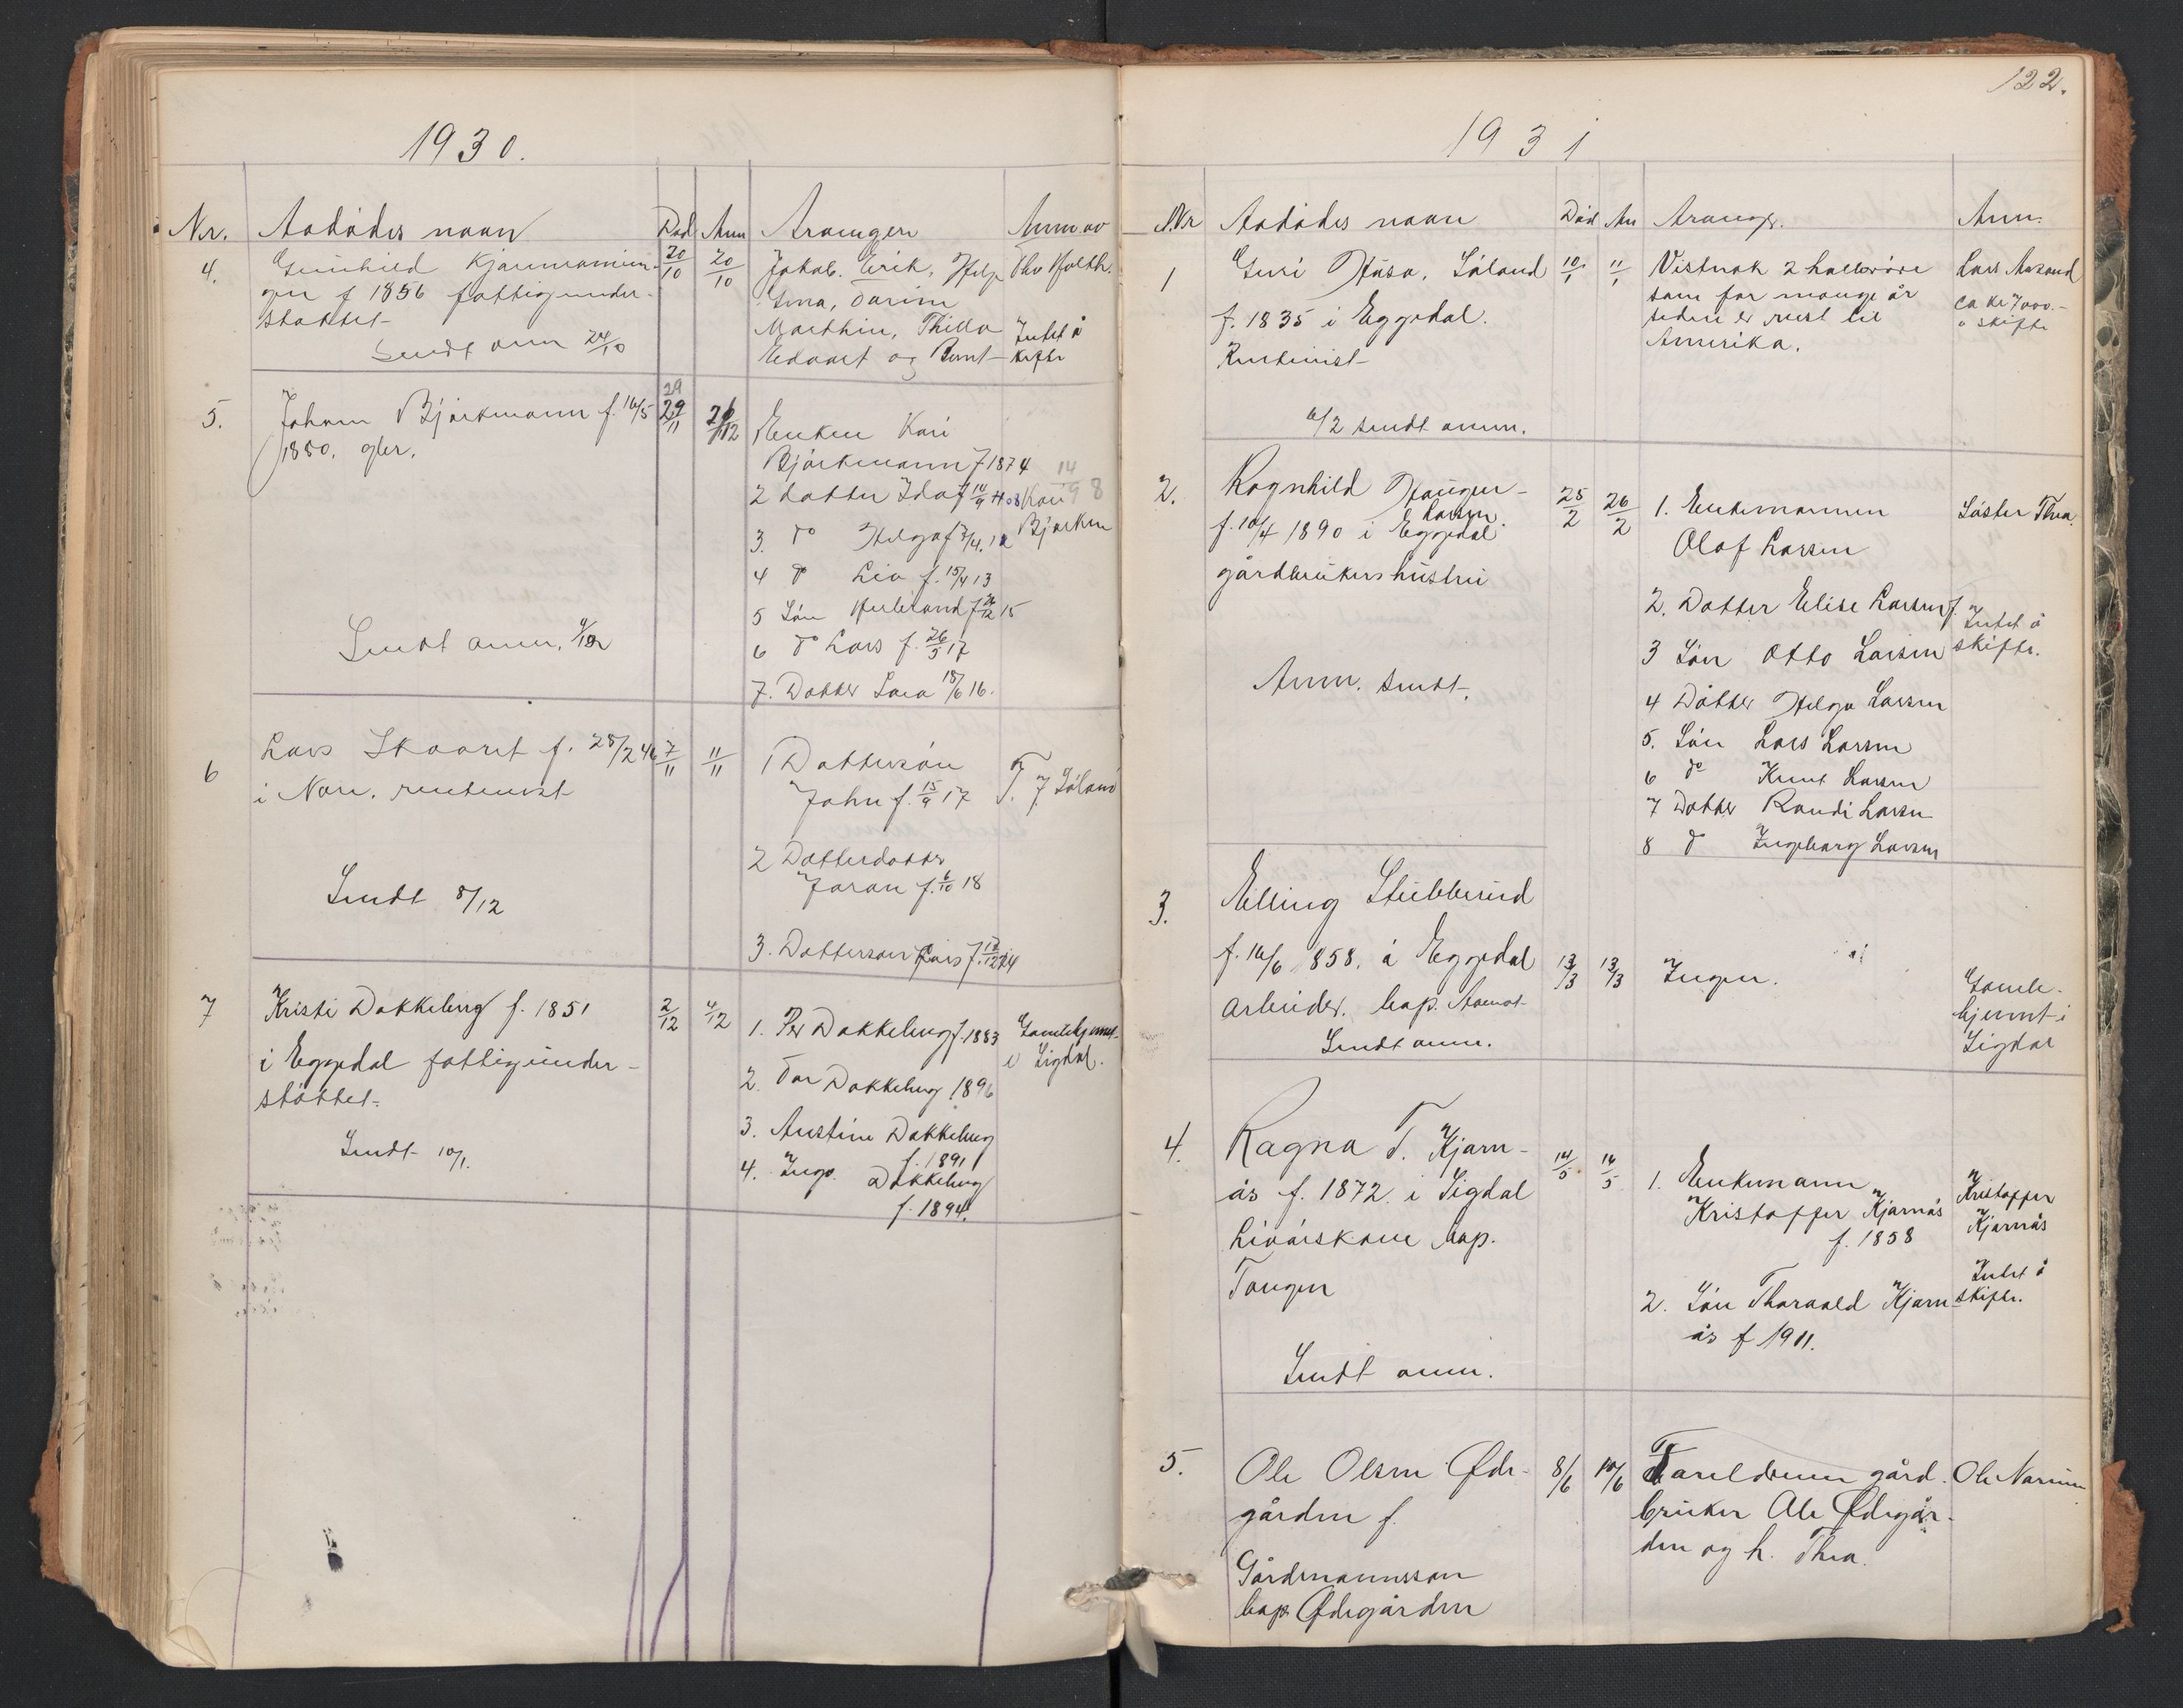 1930.
Nr. Avdødes navn Død Anm Arvinger Anm. av
4. Gunhild
f 1856 fattigunder-
støttet
Sendt anm 24/10
20/10 20/10
Jakob. Erik, Helge
Marthin, Thilla
Edvart og Bernt
Intet å
skifte
5. Johan Bjørkmann f. 16/5
1850. gbr.
Sendt anm.
29
29/11
Enken Kari
Bjørkmann f 1874
2 datter Ida f 14/9 08
3. do Helga f
4 do Liv f. 15/4 13
5 Søn Herbrand f 26/12 15
6 do Lars f. 26/5 17
7. Datter Sara 18/6 16.
14
98
Kari
Bjørkm
6 Lars Skaaret f. 28/2 46
i Nore. rentenist
Sendt 8/12
7/11 11/11
1 Dattersøn
John f. 15/9 17
2 Datterdatter
Joran f. 6/10 18
3. Dattersøn Lars f.
T. J. Søland
7 Kristi Dokkeberg f. 1851
i Eggedal fattigunder-
støttet.
Sendt 10/1.
2/12 4/12
1. Per Dokkeberg f. 1883
2. Tor Dokkeberg 1896
3. Austine Dokkeberg
f. 1891
4. Ingv. Dokkeberg
f. 1894.
Gamlehjemmet
i Sigdal.
122.
1931
Nr Avdødes navn Død An Arvinger. Anm.
1 Guri Husø, Søland
f. 1835 i Eggedal.
Rentenist
6/2 sendt anm.
10/1 11/1
Vistnok 2 halbrøre
som for mange år
siden er reist til
Amerika.
Lars
ca kr 7000.-
å skifte
2. Ragnhild Hauger-
Larsen.
f. 10/4 1890 i Eggedal
gårdbrukers hustru
Anm. sendt.
25/2 26/2
1. Enkemannen
Olaf Larsen
2. Datter Elise Larsen f.
3 Søn Otto Larsen
4 Datter Helga Larsen
5. Søn Lars Larsen
6 do Knut Larsen
7 Datter Randi Larsen
8 do Ingeborg Larsen
Søster Thea.
Intet å
skifte.
3. Elling Stubberud
f. 16/6 1858. i Eggedal
arbeider. bop. Aamot
Sendt anm.
13/3 13/3
Ingen.
Gamle-
hjemmet i
Sigdal
4. Ragna T. Kjørn-
ås f. 1872 i Sigdal
bop.
Tangen
Sendt anm.
14/5 16/5
1. Enkemann
Kristoffer Kjørnås
f. 1858
2. Søn Thorvald Kjørn-
ås f 1911.
Kristoffer
Kjørnås
Intet å
skifte.
5. Ole Olsen Øde-
gården f.
Gårdmannssøn
bop. Ødegården
8/6 10/6
Foreldrene gård-
bruker Ole Ødegår-
den og h. Thea.
Ole